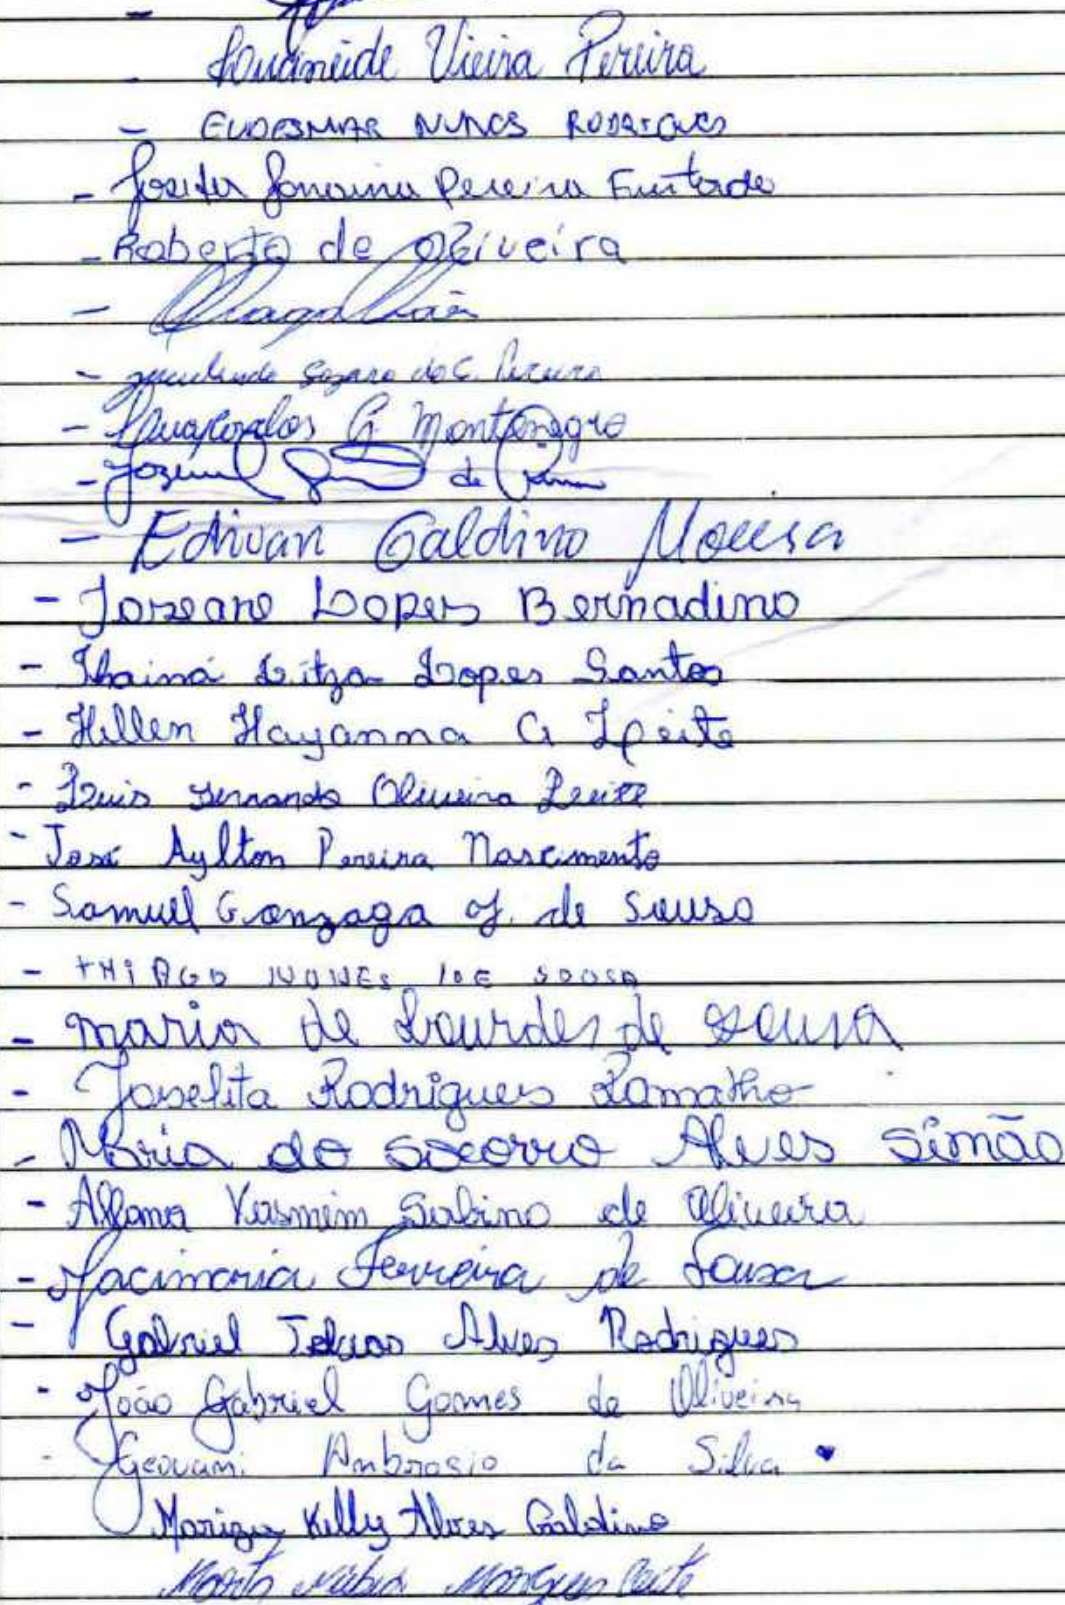 - Vieira Pereira
- EUDESMAR NUNES RODRIGUES
- Janaina Pereira Furtado
- Roberto de Oliveira
- Magalhães
-
- G Montenegro
- de
- Edivan Galdino Mousa
- Joseane Lopes Bernadino
- Thainá Litza Lopes Santos
- Hillen Hayanna G Leite
- Luis Fernando Oliveira Leite
- José Aylton Pereira Nascimento
- Samuel Gonzaga de Sousa
- THIAGO NUNES DE SOUSA
- Maria de Lourdes de Sousa
- Joselita Rodrigues Ramalho
- Maria do Socorro Alves Simão
- Allana Yasmim Sabino de Oliveira
- Jacimaria Ferreira de Sousa
- Gabriel Alves Rodrigues
- João Gabriel Gomes de Oliveira
- Geovani Ambrosio da Silva
Kelly Alves Galdino
Marques Leite